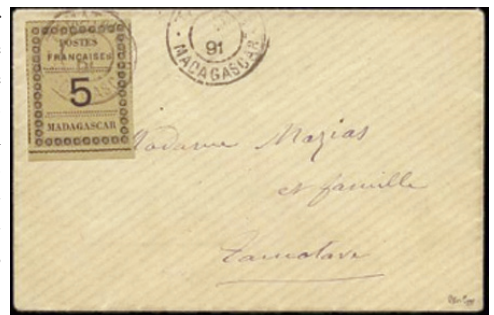 POSTES
FRANÇAISES
5
MADAGASCAR
91
MADAGASCAR
Madame Mazias
et famille
Tamatave